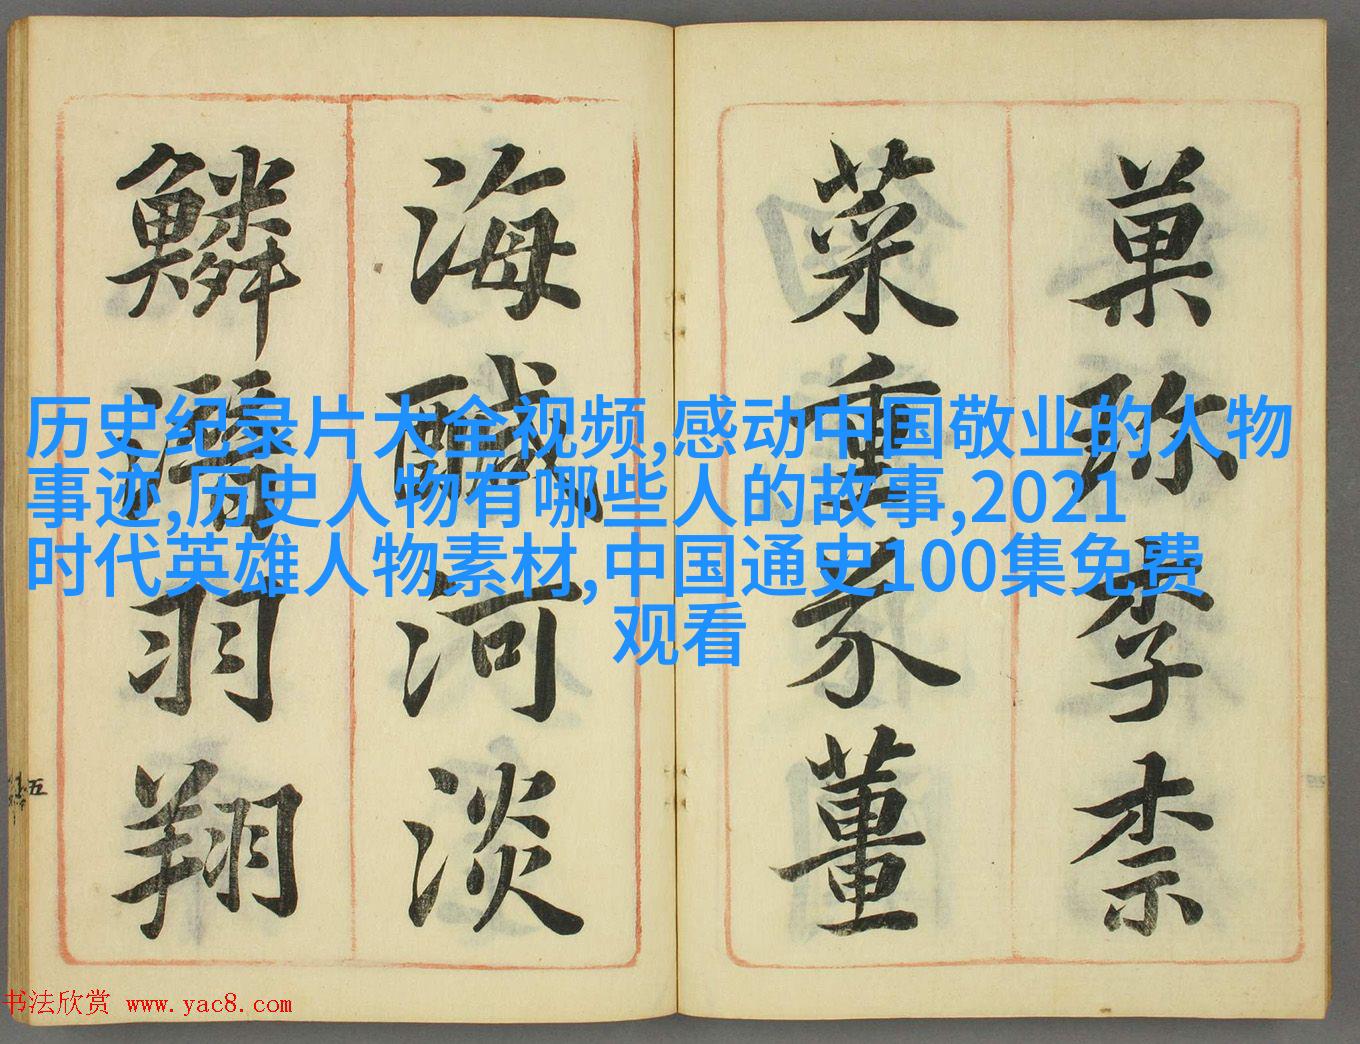 菓珎李柰
菜重芥薑
海醎河淡
鱗潛羽翔
五
历史纪录片大全视频,感动中国敬业的人物
事迹,历史人物有哪些人的故事,2021
时代英雄人物素材,中国通史100集免费
观看
书法欣赏 www.yac8.com